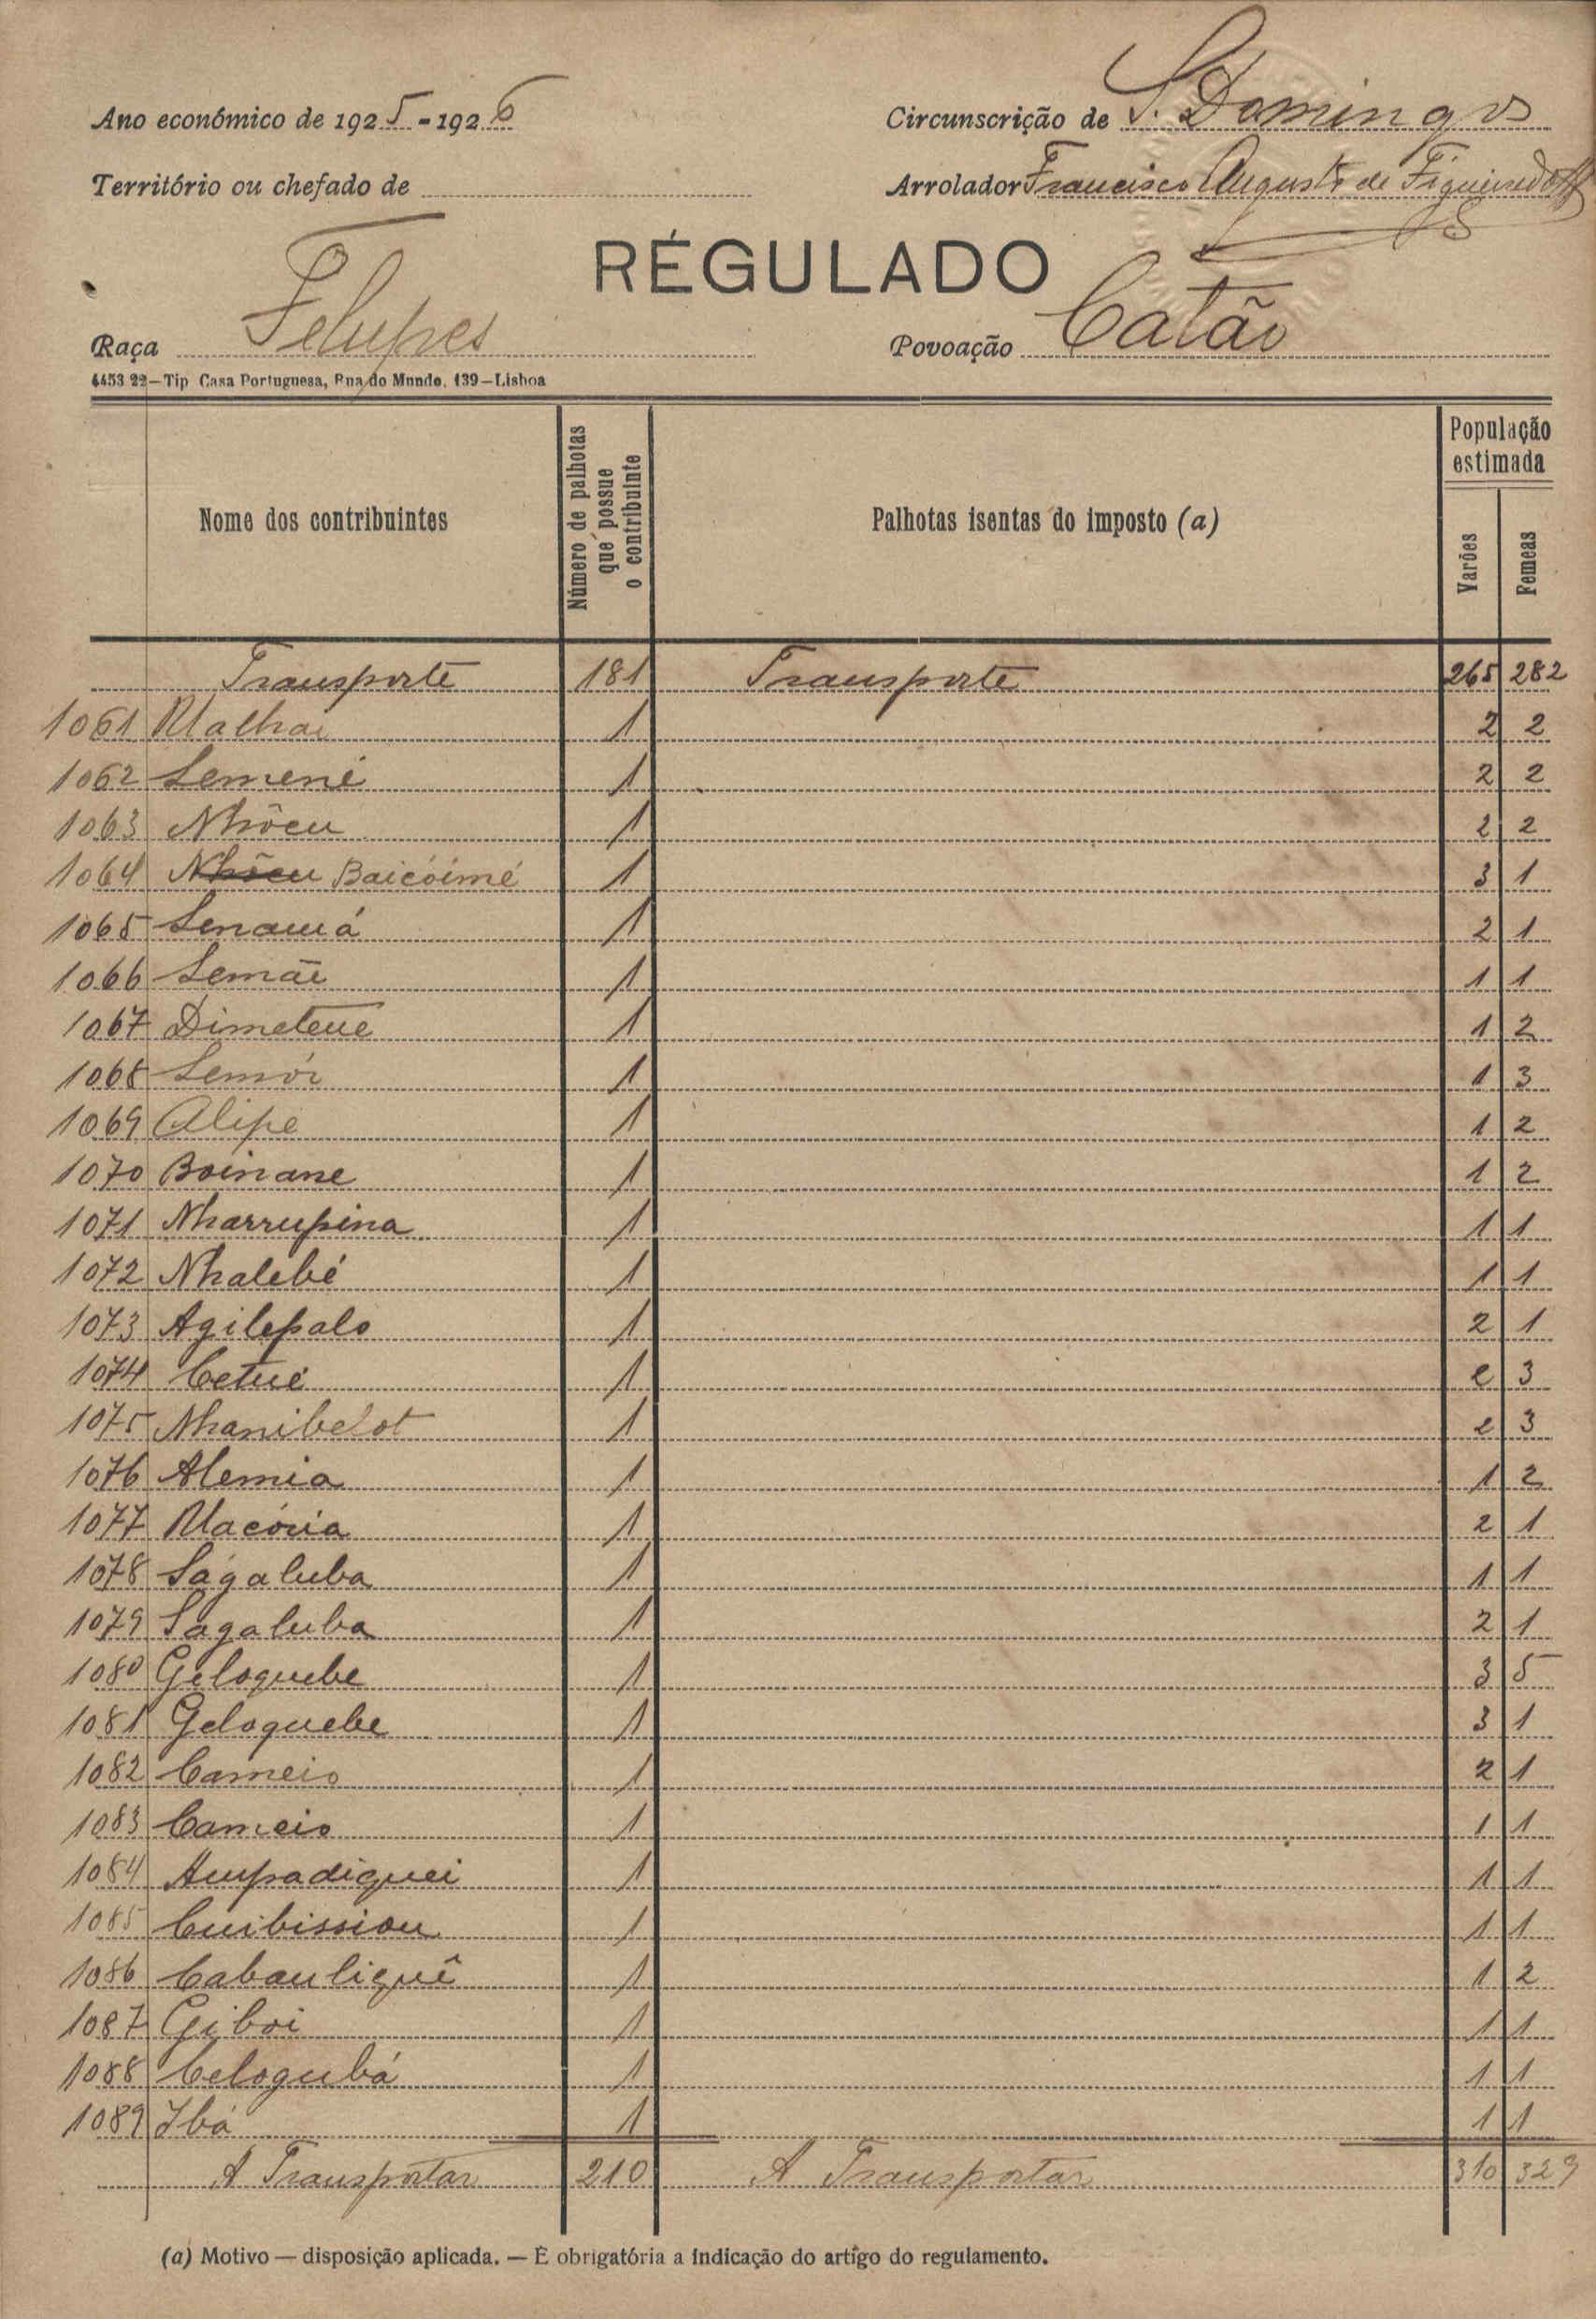 Ano económico de 1925-1926
Circunscrição de S. Domingos
Território ou chefado de
Arrolador Francisco Augusto de Figueiredo
RÉGULADO
Raça Felupes
Povoação Catão
4453 22—Tip Casa Portuguesa, Rua do Mundo, 139—Lisboa
Nome dos contribuintes
Número de palhotas que possue o contribuinte
Palhotas isentas do imposto (a)
População estimada
Varões
Femeas
Transporte 181 Transporte 265 282
1061 Malhai 1 2 2
1062 Semené 1 2 2
1063 Nhôcu 1 2 2
1064 Nhôcu Baicóimé 1 3 1
1065 Senauá 1 2 1
1066 Semãe 1 1 1
1067 Dimeteue 1 1 2
1068 Semór 1 1 3
1069 Alipe 1 1 2
1070 Boinane 1 1 2
1071 Nharrupina 1 1 1
1072 Nhalebé 1 1 1
1073 Agilepalo 1 2 1
1074 Cetué 1 2 3
1075 Nhanibelot 1 2 3
1076 Alemia 1 1 2
1077 Macória 1 2 1
1078 Ságaluba 1 1 1
1079 Sagaluba 1 2 1
1080 Geloquebe 1 3 5
1081 Geloquebe 1 3 1
1082 Cameio 1 2 1
1083 Cameio 1 1 1
1084 Aupadiquei 1 1 1
1085 Cuibissiou 1 1 1
1086 Cabauliquê 1 1 2
1087 Giboi 1 1 1
1088 Celogubá 1 1 1
1089 Ibá 1 1 1
A Transportar 210 A Transportar 310 329
(a) Motivo — disposição aplicada. — É obrigatória a indicação do artigo do regulamento.